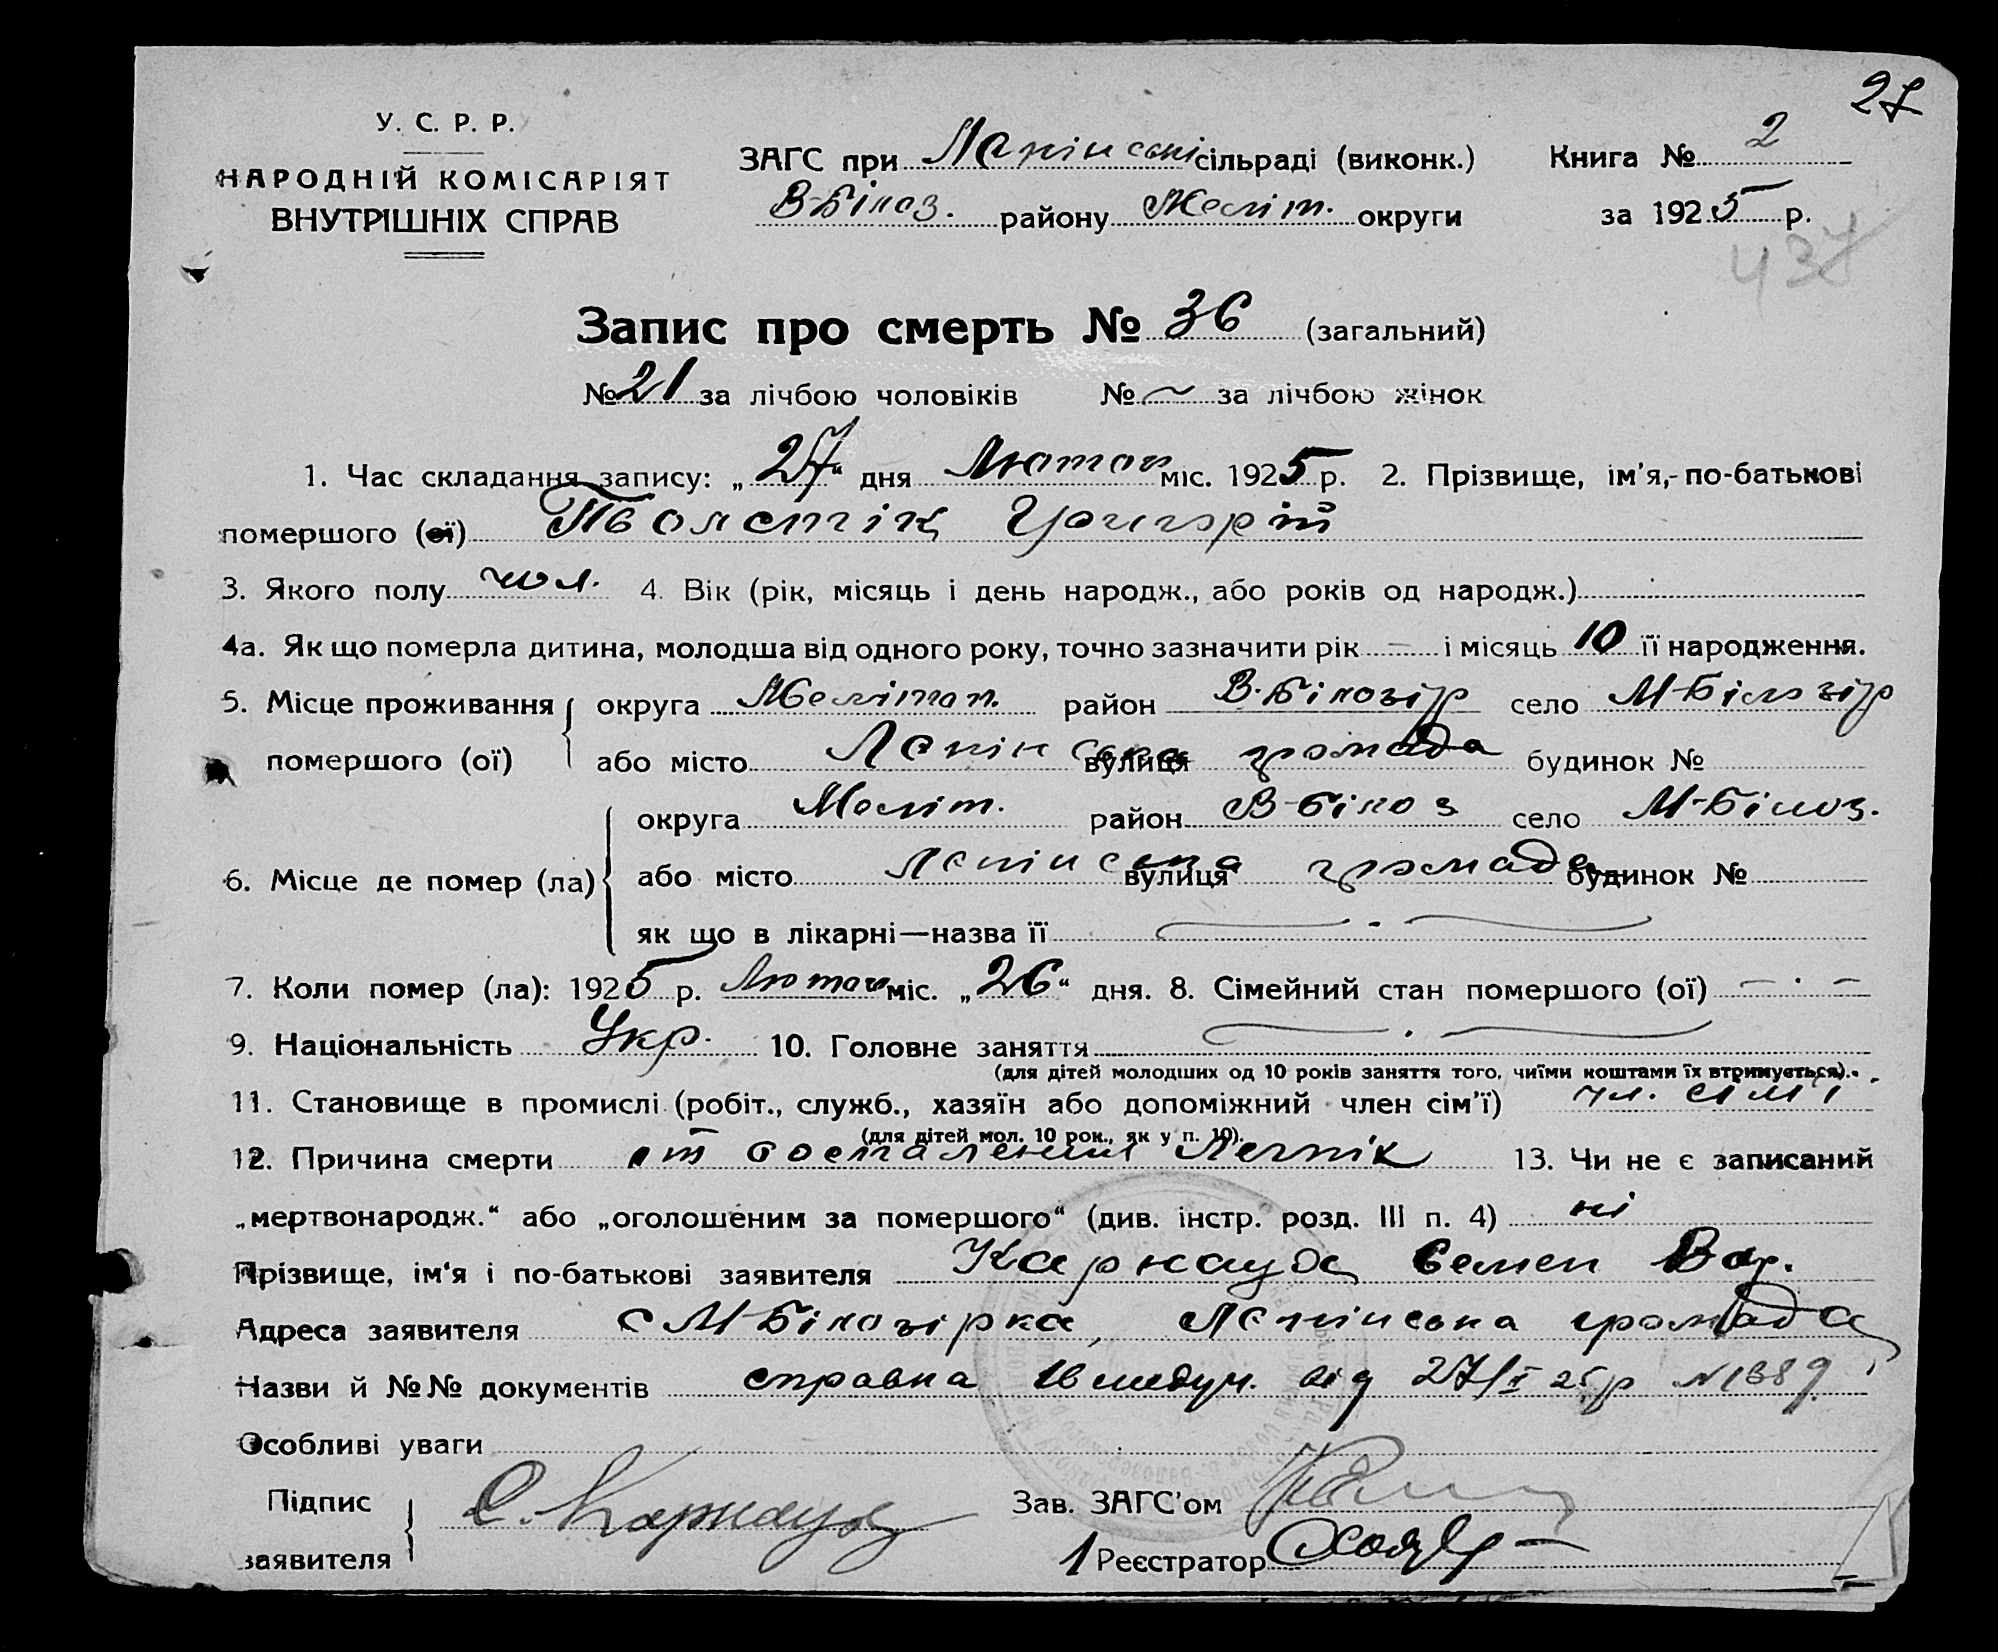 27
У. С. Р. Р.
НАРОДНІЙ КОМІСАРІЯТ
ВНУТРІШНІХ СПРАВ
ЗАГС при сільраді (виконк.) Книга № 2
В-Білоз. району Меліт. округи за 1925 р.
437
Запис про смерть № 36 (загальний)
№ 21 за лічбою чоловіків № ~ за лічбою жінок
1. Час складання запису: „27“ дня Лютого міс. 1925 р. 2. Прізвище, ім'я,-по-батькові
помершого (ої) Григорій
3. Якого полу чол. 4. Вік (рік, місяць і день народж., або років од народж.)
4а. Як що померла дитина, молодша від одного року, точно зазначити рік — і місяць 10 її народження.
5. Місце проживання округа Мелітоп. район В.Білозір село М-Білозір
помершого (ої) або місто вулиця громада будинок №
округа Меліт. район В-Білоз село М-Білоз.
6. Місце де помер (ла) або місто вулиця громада будинок №
як що в лікарні—назва її
7. Коли помер (ла): 1925 р. Лютого міс. „26“ дня. 8. Сімейний стан помершого (ої) — . —
9. Національність Укр. 10. Головне заняття
(для дітей молодших од 10 років заняття того, чиїми коштами їх втримується).
11. Становище в промислі (робіт., служб., хазяїн або допоміжний член сім'ї) чл. сімї
(для дітей мол. 10 рок., як у п. 10).
12. Причина смерти от воспаления 13. Чи не є записаний
„мертвонародж.“ або „оголошеним за помершого“ (див. інстр. розд. III п. 4) ні
Прізвище, ім'я і по-батькові заявителя Карнауха Семен Вар.
Адреса заявителя с М-Білозірка, громада
Назви й №№ документів справка від 27/I 25 р N 1389
Особливі уваги
Підпис С. Карнаух Зав. ЗАГС'ом
заявителя Реєстратор